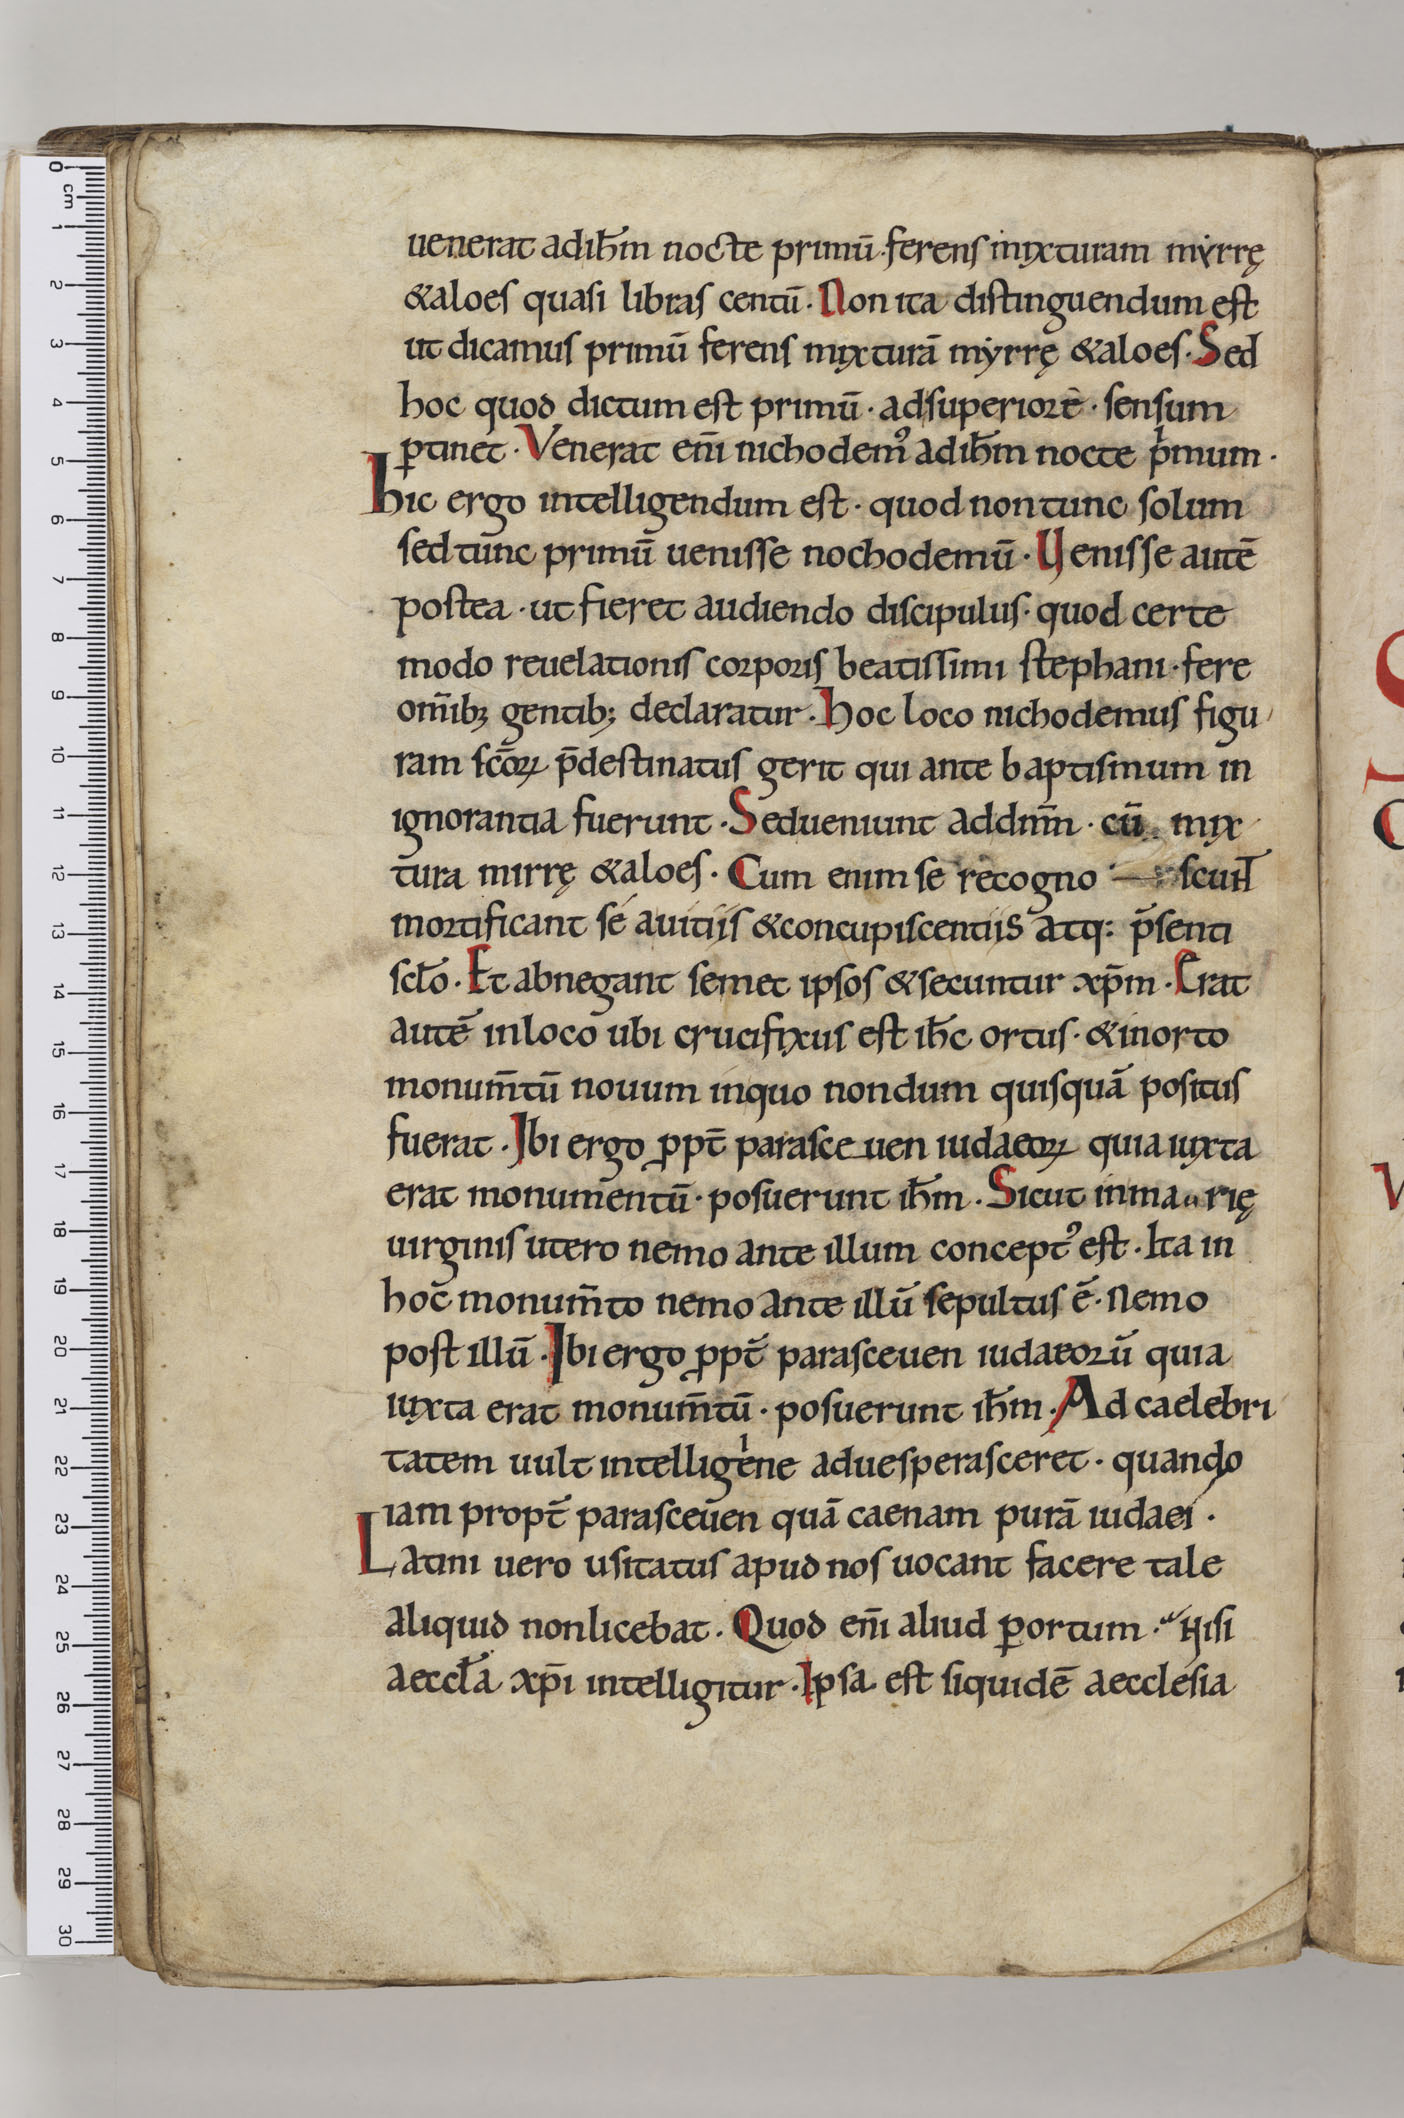 uenerat adih̄m nocte primū·ferens mixturam myrrę
&aloes quasi libras centū·Non ita distinguendum est
ut dicamus primū ferens mixturā myrrę &aloes·Sed
hoc quod dictum est primū·adsuperiorē·sensum
ꝑtinet·Venerat em̄ nichodemꝰ adih̄m nocte pͥmum·
hic ergo intelligendum est·quod non tunc solum
sed tunc primū uenisse nochodemū·Uenisse autē
postea·ut fieret audiendo discipulus·quod certe
modo reuelationis corporis beatissimi stephani·fere
om̄ibꝫ gentibꝫ declaratur·hoc loco nichodemus figu
ram scōꝝ p̄destinatus gerit qui ante baptismum in
ignorantia fuerunt·Sed ueniunt addnm̄·cū mix
tura mirrę &aloes·Cum enim se recogno scunt̄
mortificant sé auitiis &concupiscentiis atq: p̄senti
scł̄o·Et abnegant semet ipsos &secuntur xp̄m·Erat
autē inloco ubi crucifixus est ih̄c ortus·&inorto
monum̄tū nouum inquo nondum quisquā positus
fuerat·Ibi ergo ꝓpt̄ parasceuen iudaeoꝝ quia iuxta
erat monumentū·posuerunt ih̄m·Sicut inmarię
uirginis utero nemo ante illum conceptꝰ est·Ita in
hoc monum̄to nemo ante illū sepultus ē·Nemo
post illū·Ibi ergo ꝓpt̄ parasceuen iudaeorū quia
iuxta erat monum̄tū·posuerunt ih̄m·Ad caelebri
tatem uult intelligi ne aduesperasceret·quando
iam propt̄ parasceuen quā caenam purā iudaei·
Latini uero usitatus apud nos uocant facere tale
aliquid nonlicebat·Quod em̄ aliud ꝑortum·Nisi
aeccł̄a xp̄i intelligitur·Ipsa est siquidē aecclesia